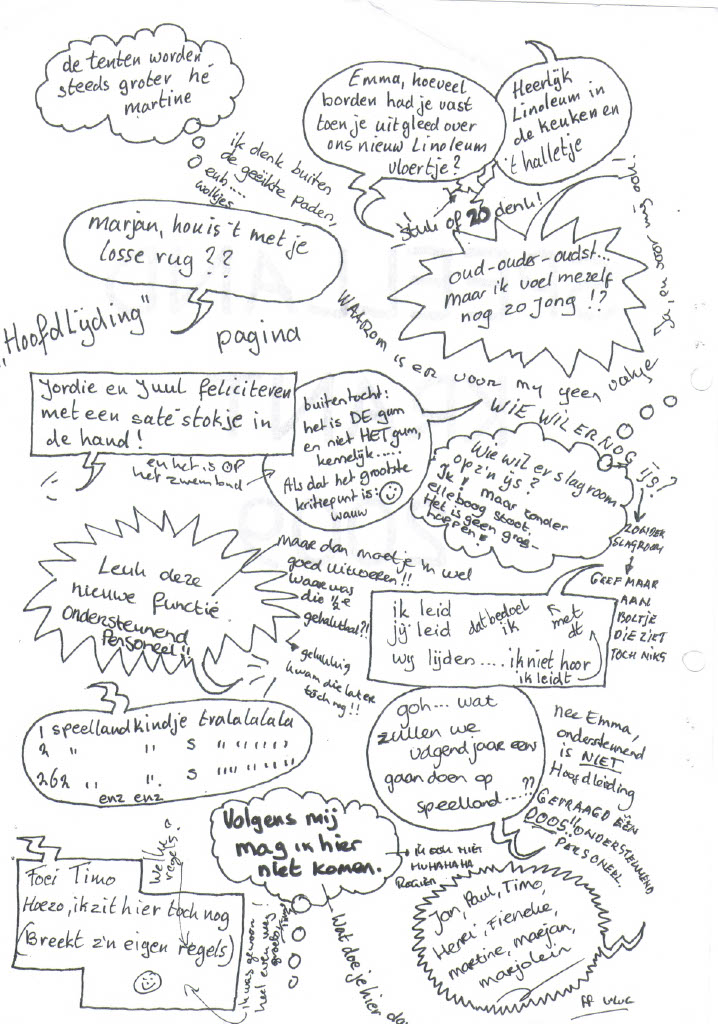 de tenten worden
steeds groter hé
martine
ik denk buiten
de geëikte paden,
euh....
wolkjes
Emma, hoeveel
borden had je vast
toen je uitgleed over
ons nieuw Linoleum
vloertje?
Heerlijk
Linoleum in
de keuken en
't halletje
stuk of 20 denk!
marjan, hou is't met je
losse rug??
oud-ouder-oudst...
maar ik voel mezelf
nog zo jong!?
"Hoofdlijding"
pagina
WAAROM is er voor mij geen vakje
WIE WIL ER NOG IJS?
Jordie en Juul feliciteren
met een saté-stokje in
de hand!
en het is OP
het zwembad
buitentocht:
het is DE gum
en niet HET gum,
kennelijk.....
Als dat het grootste
kritiepunt is:
wauw
Wie wil er slagroom
op z'n ijs?
Ik! maar zonder
elleboog stoot.
Het is geen gras-
happen!
ZONDER
SLAGROOM
GEEF MAAR
AAN
BOLTJE
DIE ZIET
TOCH NIKS
Leuk deze
nieuwe functie.
Ondersteunend
Personeel!!
maar dan moet je 'm wel
goed uitvoeren!!
waar was
die 2e
gehaktbal?!
gelukkig
kwam die later
toch nog!!
ik leid
jij leid
dat bedoel
ik
met
dt
wij lijden.....ik niet hoor
ik leidt
1 speellandkindje tralalalala
2 " " s " " " " "
262 " " s " " " " "
enz enz
goh... wat
zullen we
volgend jaar eens
gaan doen op
speelland.....??
nee Emma,
ondersteunend
is NIET
Hoofdleiding
GEVRAAGD EEN
DOOS ONDERSTEUNEND
PERSONEEL.
Volgens mij
mag ik hier
niet komen.
IK OOK NIET
MUHAHAHA
ROGIER
Welke
regels?
Foei Timo
Hoezo, ik zit hier toch nog
(Breekt z'n eigen regels)
ik was gewoon
heel even weg
Wat doe je hier dan
Jan, Paul, Timo,
Henri, Fieneke,
martine, marjan,
marjolein